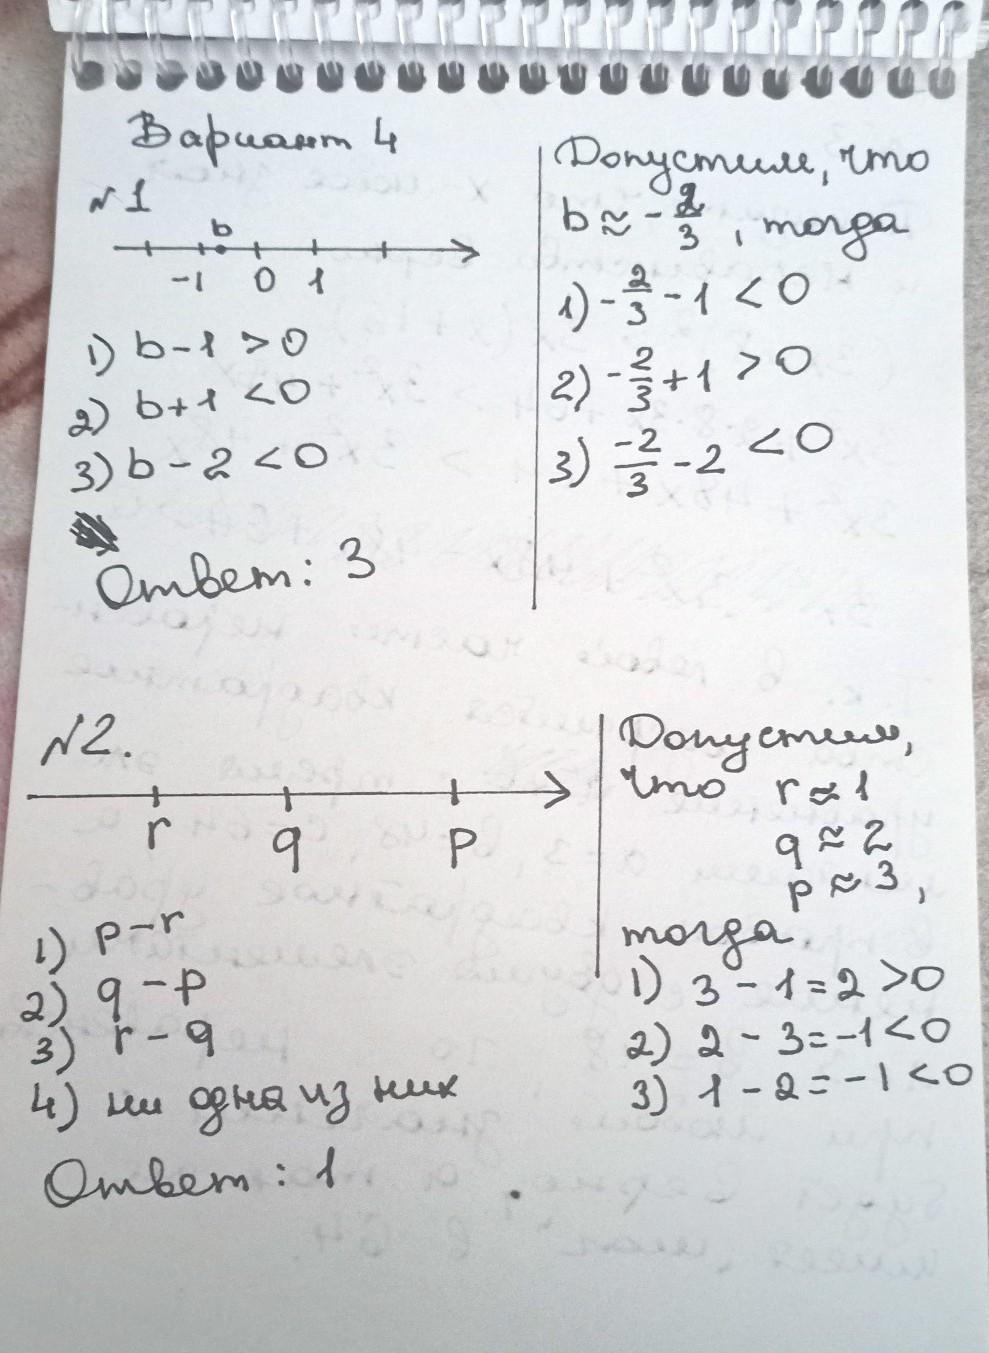 Вариант 4
№1
b
-1 0 1
1) b-1 >0
2) b+1 <0
3) b-2 <0
Ответ: 3
Допустим, что
b≈ -2/3, тогда
1) -2/3 -1 <0
2) -2/3 +1 >0
3) -2/3 -2 <0
№2.
r q p
1) p-r
2) q-p
3) r-q
4) ни одна из них
Ответ: 1
Допустим,
что r≈1
q≈2
p≈3,
тогда
1) 3-1=2>0
2) 2-3=-1<0
3) 1-2=-1<0